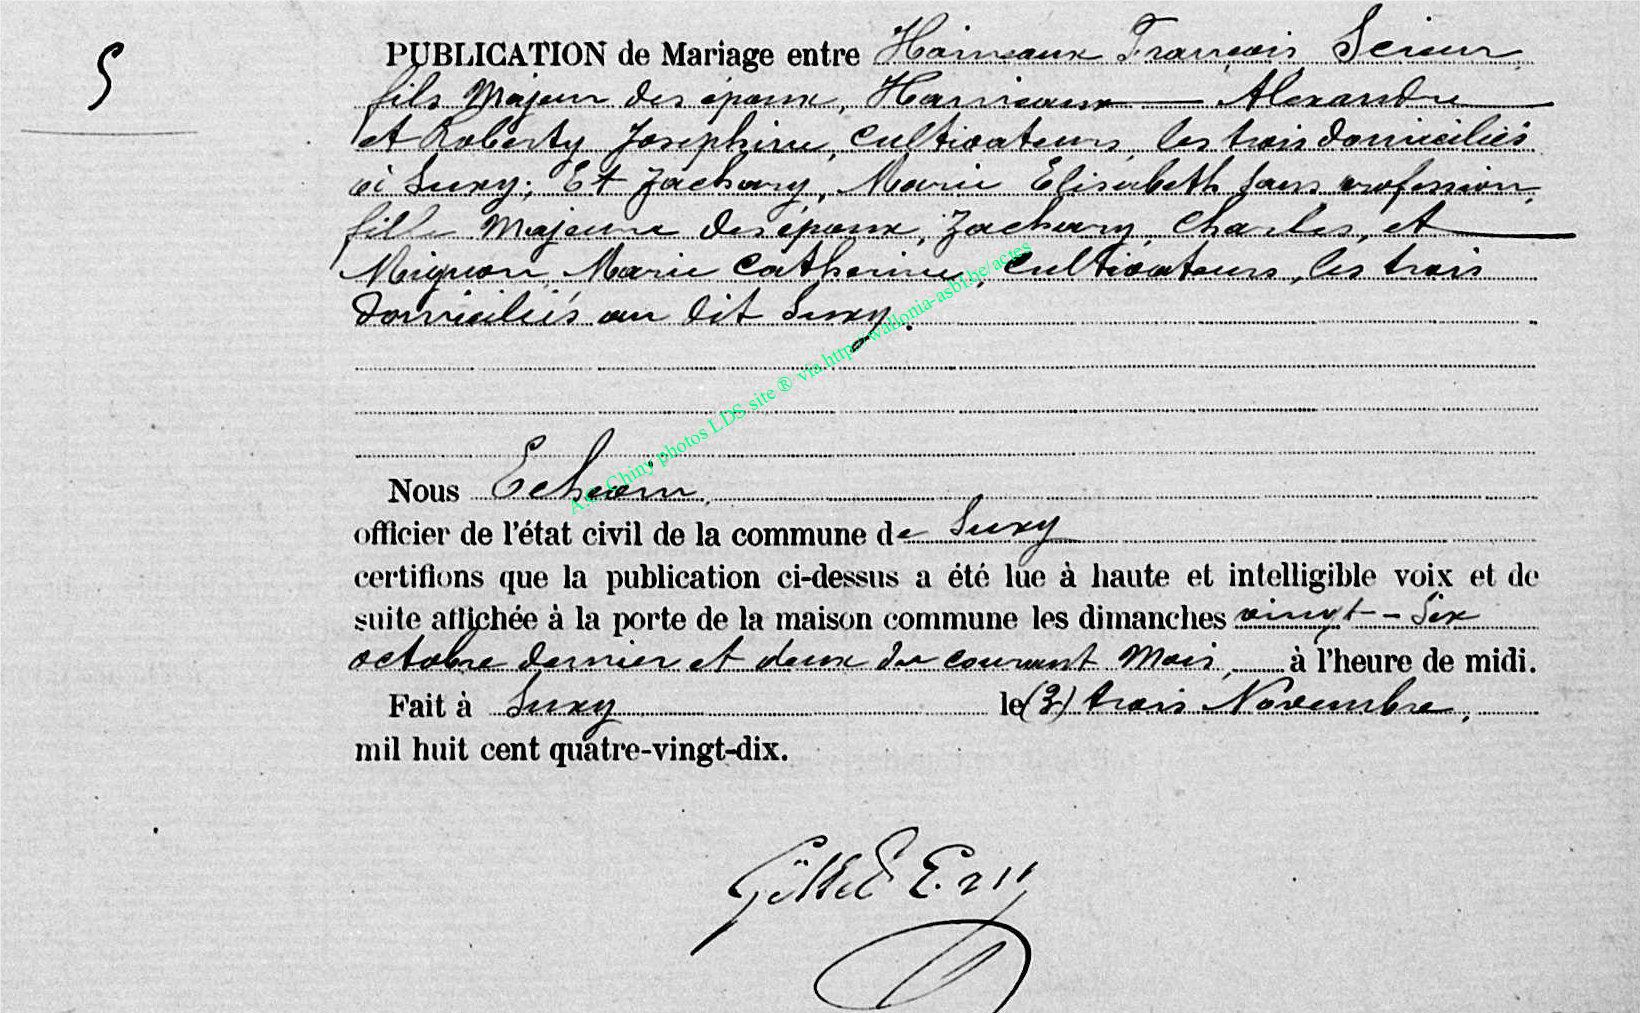 5
PUBLICATION de Mariage entre Haineaux François Scieur,
fils Majeur des époux, Haineaux — Alexandre
et Roberty Joséphine, cultivateurs, les trois domiciliés
à Suxy; Et Zachary, Marie Elisabeth sans profession,
fille Majeure des époux, Zachary, Charles, et
Mignon, Marie Catherine, cultivateurs, les trois
domiciliés au dit Suxy.
A.C. Chiny photos LDS site ® via http://wallonia-asbl.be/actes
Nous Echevin,
officier de l'état civil de la commune de Suxy
certifions que la publication ci-dessus a été lue à haute et intelligible voix et de
suite affichée à la porte de la maison commune les dimanches vingt-six
octobre dernier et deux du courant Mois, à l'heure de midi.
Fait à Suxy le (3) trois Novembre,
mil huit cent quatre-vingt-dix.